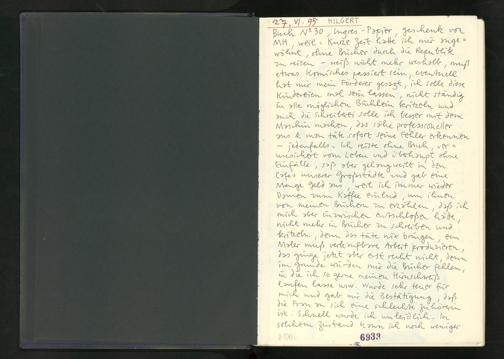 27. VI. 95 HILGERT
Buch Nº 30, Ingres-Papier, geschenk von
MH, weil: Kurze Zeit hatte ich mir ange=
wöhnt, ohne Bücher durch die Republik
zu reisen – weiß nicht mehr weshalb, muß
etwas Komisches passiert sein, eventuell
hat mir mein Förderer gesagt, ich solle diese
Kindereien mal sein lassen, nicht ständig
in alle möglichen Büchlein kritzeln und
auch die Schreiberei solle ich besser mit dem
Maschin machen, das sähe professioneller
aus & man täte sofort seine Fehler erkennen
– jedenfalls: Ich reiste ohne Buch, ver=
unsichert vom Leben und überhaupt ohne
Einfälle, saß aber gelangweilt in den
Cafés unserer Großstädte und gab eine
Menge Geld aus, weil ich immer wieder
Damen zum Kaffee einlud, um ihnen
von meinen Büchern zu erzählen, daß ich
mich aber inzwischen entschloßen habe,
nicht mehr in Bücher zu schreiben und
kritzeln, denn das täte nix bringen, ein
Maler muß verkaufbare Arbeit produzieren,
das ginge jetzt aber erst recht nicht, denn
im Grunde würden mir die Bücher fehlen,
in die ich so gerne meinen Hirnschweiß
laufen lasse usw. Wurde sehr teuer für
mich und gab mir die Bestätigung, daß
die Frau an sich eine schlechte Zuhörerin
ist. Schnell wurde ich unleidlich. In
solchem Zustand kann ich noch weniger
6933